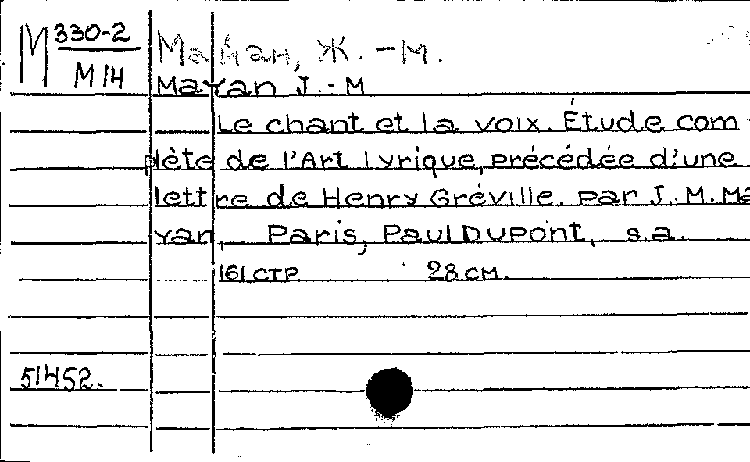 М 330-2
М 14
Майан, Ж. - М.
Mayan J. - M
Le chant et la voix. Étude com-
plète de l'Art lyrique, précédée d'une
lettre de Henry Gréville. par J. M. Ma
yan, Paris, Paul Dupont, s.a.
161 стр 28 см.
51452.